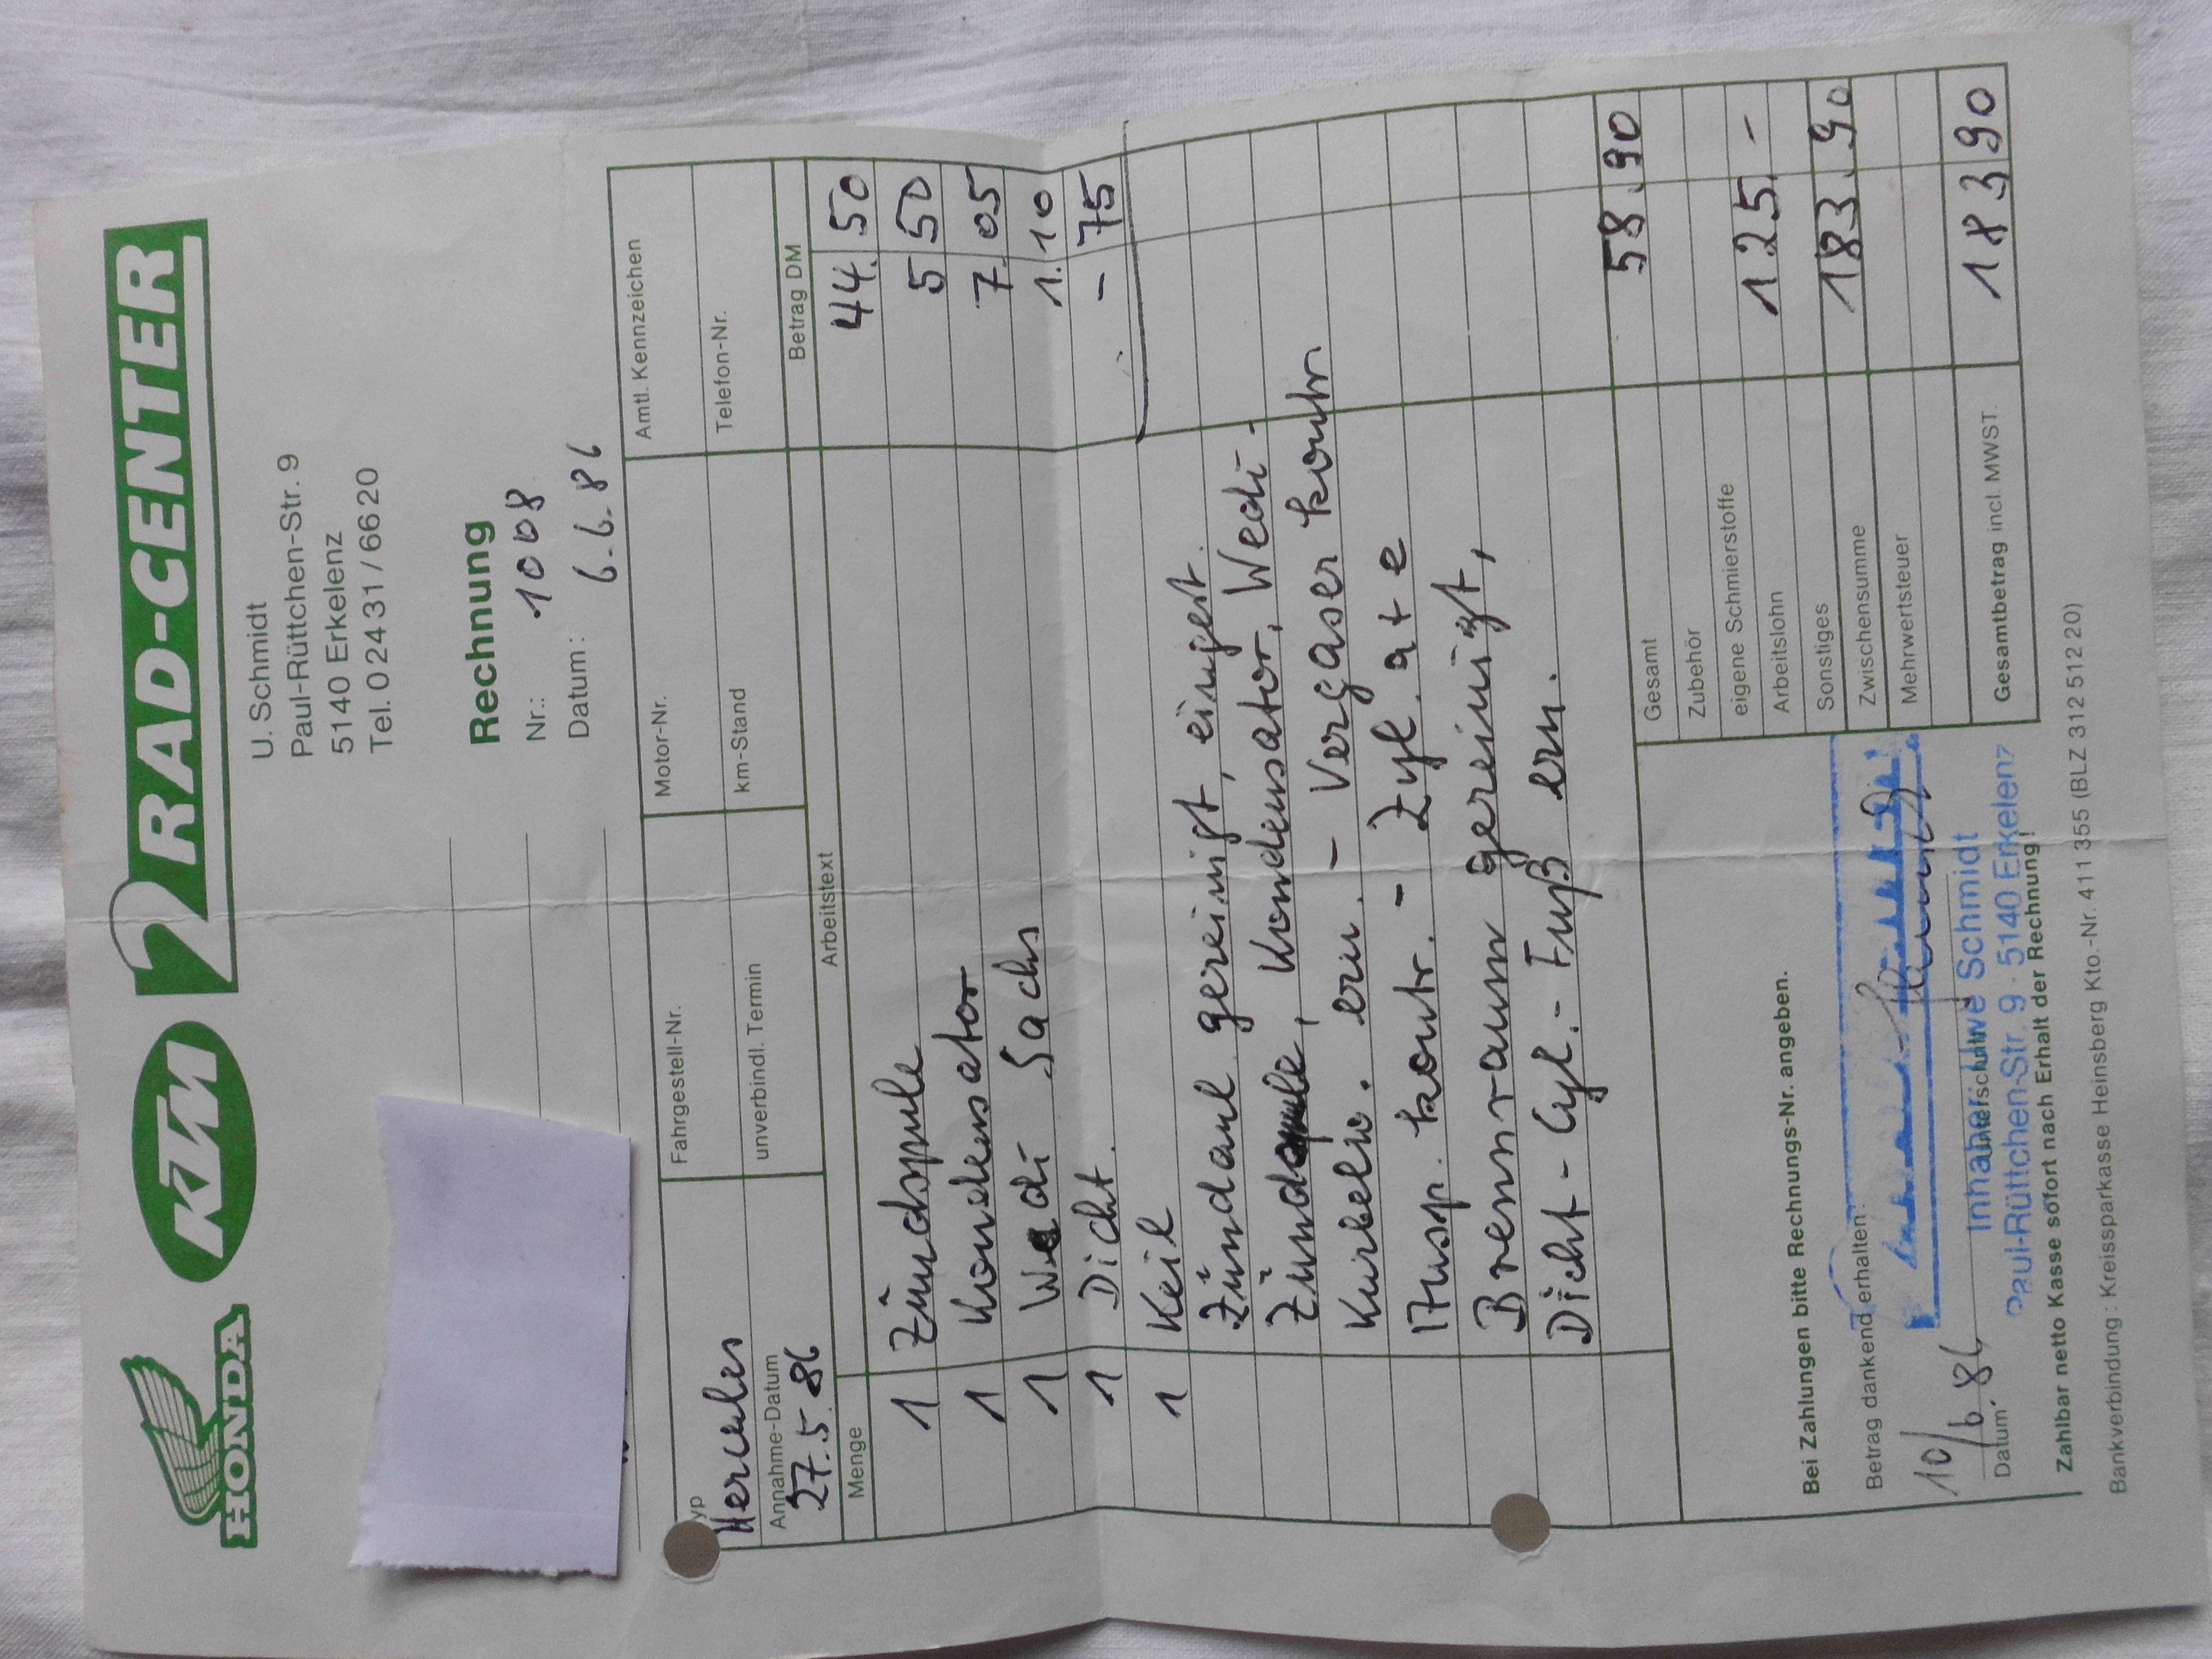 HONDA KTM 2RAD-CENTER
U. Schmidt
Paul-Rüttchen-Str. 9
5140 Erkelenz
Tel. 0 24 31 / 66 20
Rechnung
Nr.: 1008
Datum: 6.6.86
yp Fahrgestell-Nr. Motor-Nr. Amtl. Kennzeichen
Hercules
Annahme-Datum unverbindl. Termin km-Stand Telefon-Nr.
27.5.86
Menge Arbeitstext Betrag DM
1 Zündspule 44.50
1 Kondensator 5 50
1 Wedi Sachs 7.05
1 Dicht. 1.10
1 Keil - 75
Zündanl. gereinigt, eingest.
Zündspule, Kondensator, Wedi-
Kurbelw. ern. - Vergaser kontr
Ausp. kontr. - Zyl. a+e
Brennraum gereinigt,
Dicht-Cyl.-Fuß ern.
Gesamt 58.90
Zubehör
eigene Schmierstoffe
Arbeitslohn 125.-
Sonstiges
Zwischensumme 183.90
Mehrwertsteuer
Gesamtbetrag incl. MWST. 183 90
Bei Zahlungen bitte Rechnungs-Nr. angeben.
Betrag dankend erhalten:
10/6.86
Datum: Unterschrift
Inhaber Uwe Schmidt
Paul-Rüttchen-Str. 9 · 5140 Erkelenz
Zahlbar netto Kasse sofort nach Erhalt der Rechnung!
Bankverbindung: Kreissparkasse Heinsberg Kto.-Nr. 411 355 (BLZ 312 512 20)